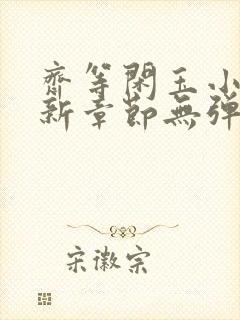 齋等閑玉小
新章節無彈
宋徽宗